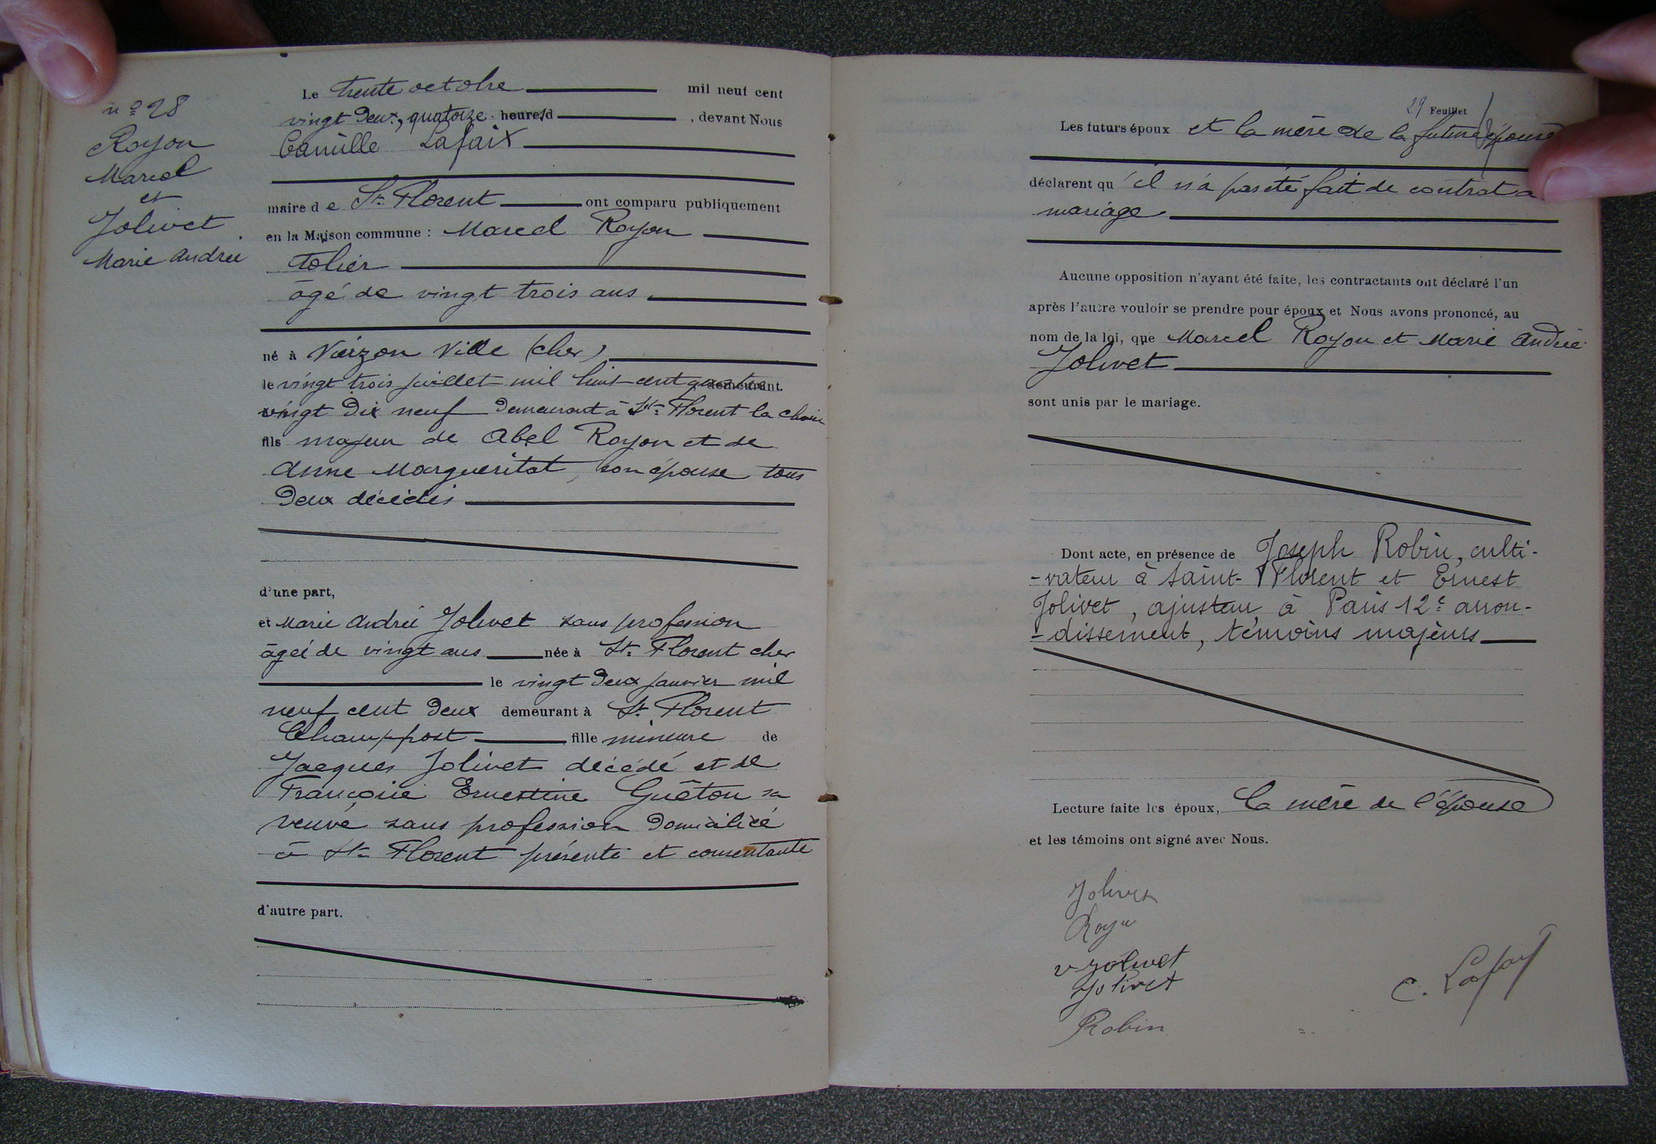 n° 28
Royon
Marcel
et
Jolivet
Marie Andrée
Le trente octobre mil neuf cent
vingt deux, quatorze heures d , devant Nous
Camille Lafaix
maire de St Florent ont comparu publiquement
en la Maison commune : Marcel Royon
tolier
âgé de vingt trois ans
né à Vierzon Ville (cher)
le vingt trois juillet mil huit cent quatre demeurant
vingt dix neuf demeurant à St Florent la
fils majeur de Abel Royon et de
Anne Margueritat, son épouse tous
deux décédés
d'une part,
et Marie Andrée Jolivet sans profession
âgée de vingt ans née à St Florent cher
le vingt deux janvier mil
neuf cent deux demeurant à St Florent
fille mineure de
Jacques Jolivet décédé et de
Françoise Ernestine Guêton sa
veuve sans profession domiciliée
à St Florent présente et consentante
d'autre part.
29 Feuillet
Les futurs époux et la mère de la future épouse
déclarent qu'il n'a pas été fait de contrat de
mariage
Aucune opposition n'ayant été faite, les contractants ont déclaré l'un
après l'autre vouloir se prendre pour époux et Nous avons prononcé, au
nom de la loi, que Marcel Royon et Marie Andrée
Jolivet
sont unis par le mariage.
Dont acte, en présence de Joseph Robin, culti-
-vateur à Saint-Florent et Ernest
Jolivet, ajusteur à Paris 12e arron-
-dissement, témoins majeurs
Lecture faite les époux, la mère de l'épouse
et les témoins ont signé avec Nous.
Jolivet
Royon
v Jolivet
Jolivet
C. Lafaix
Robin